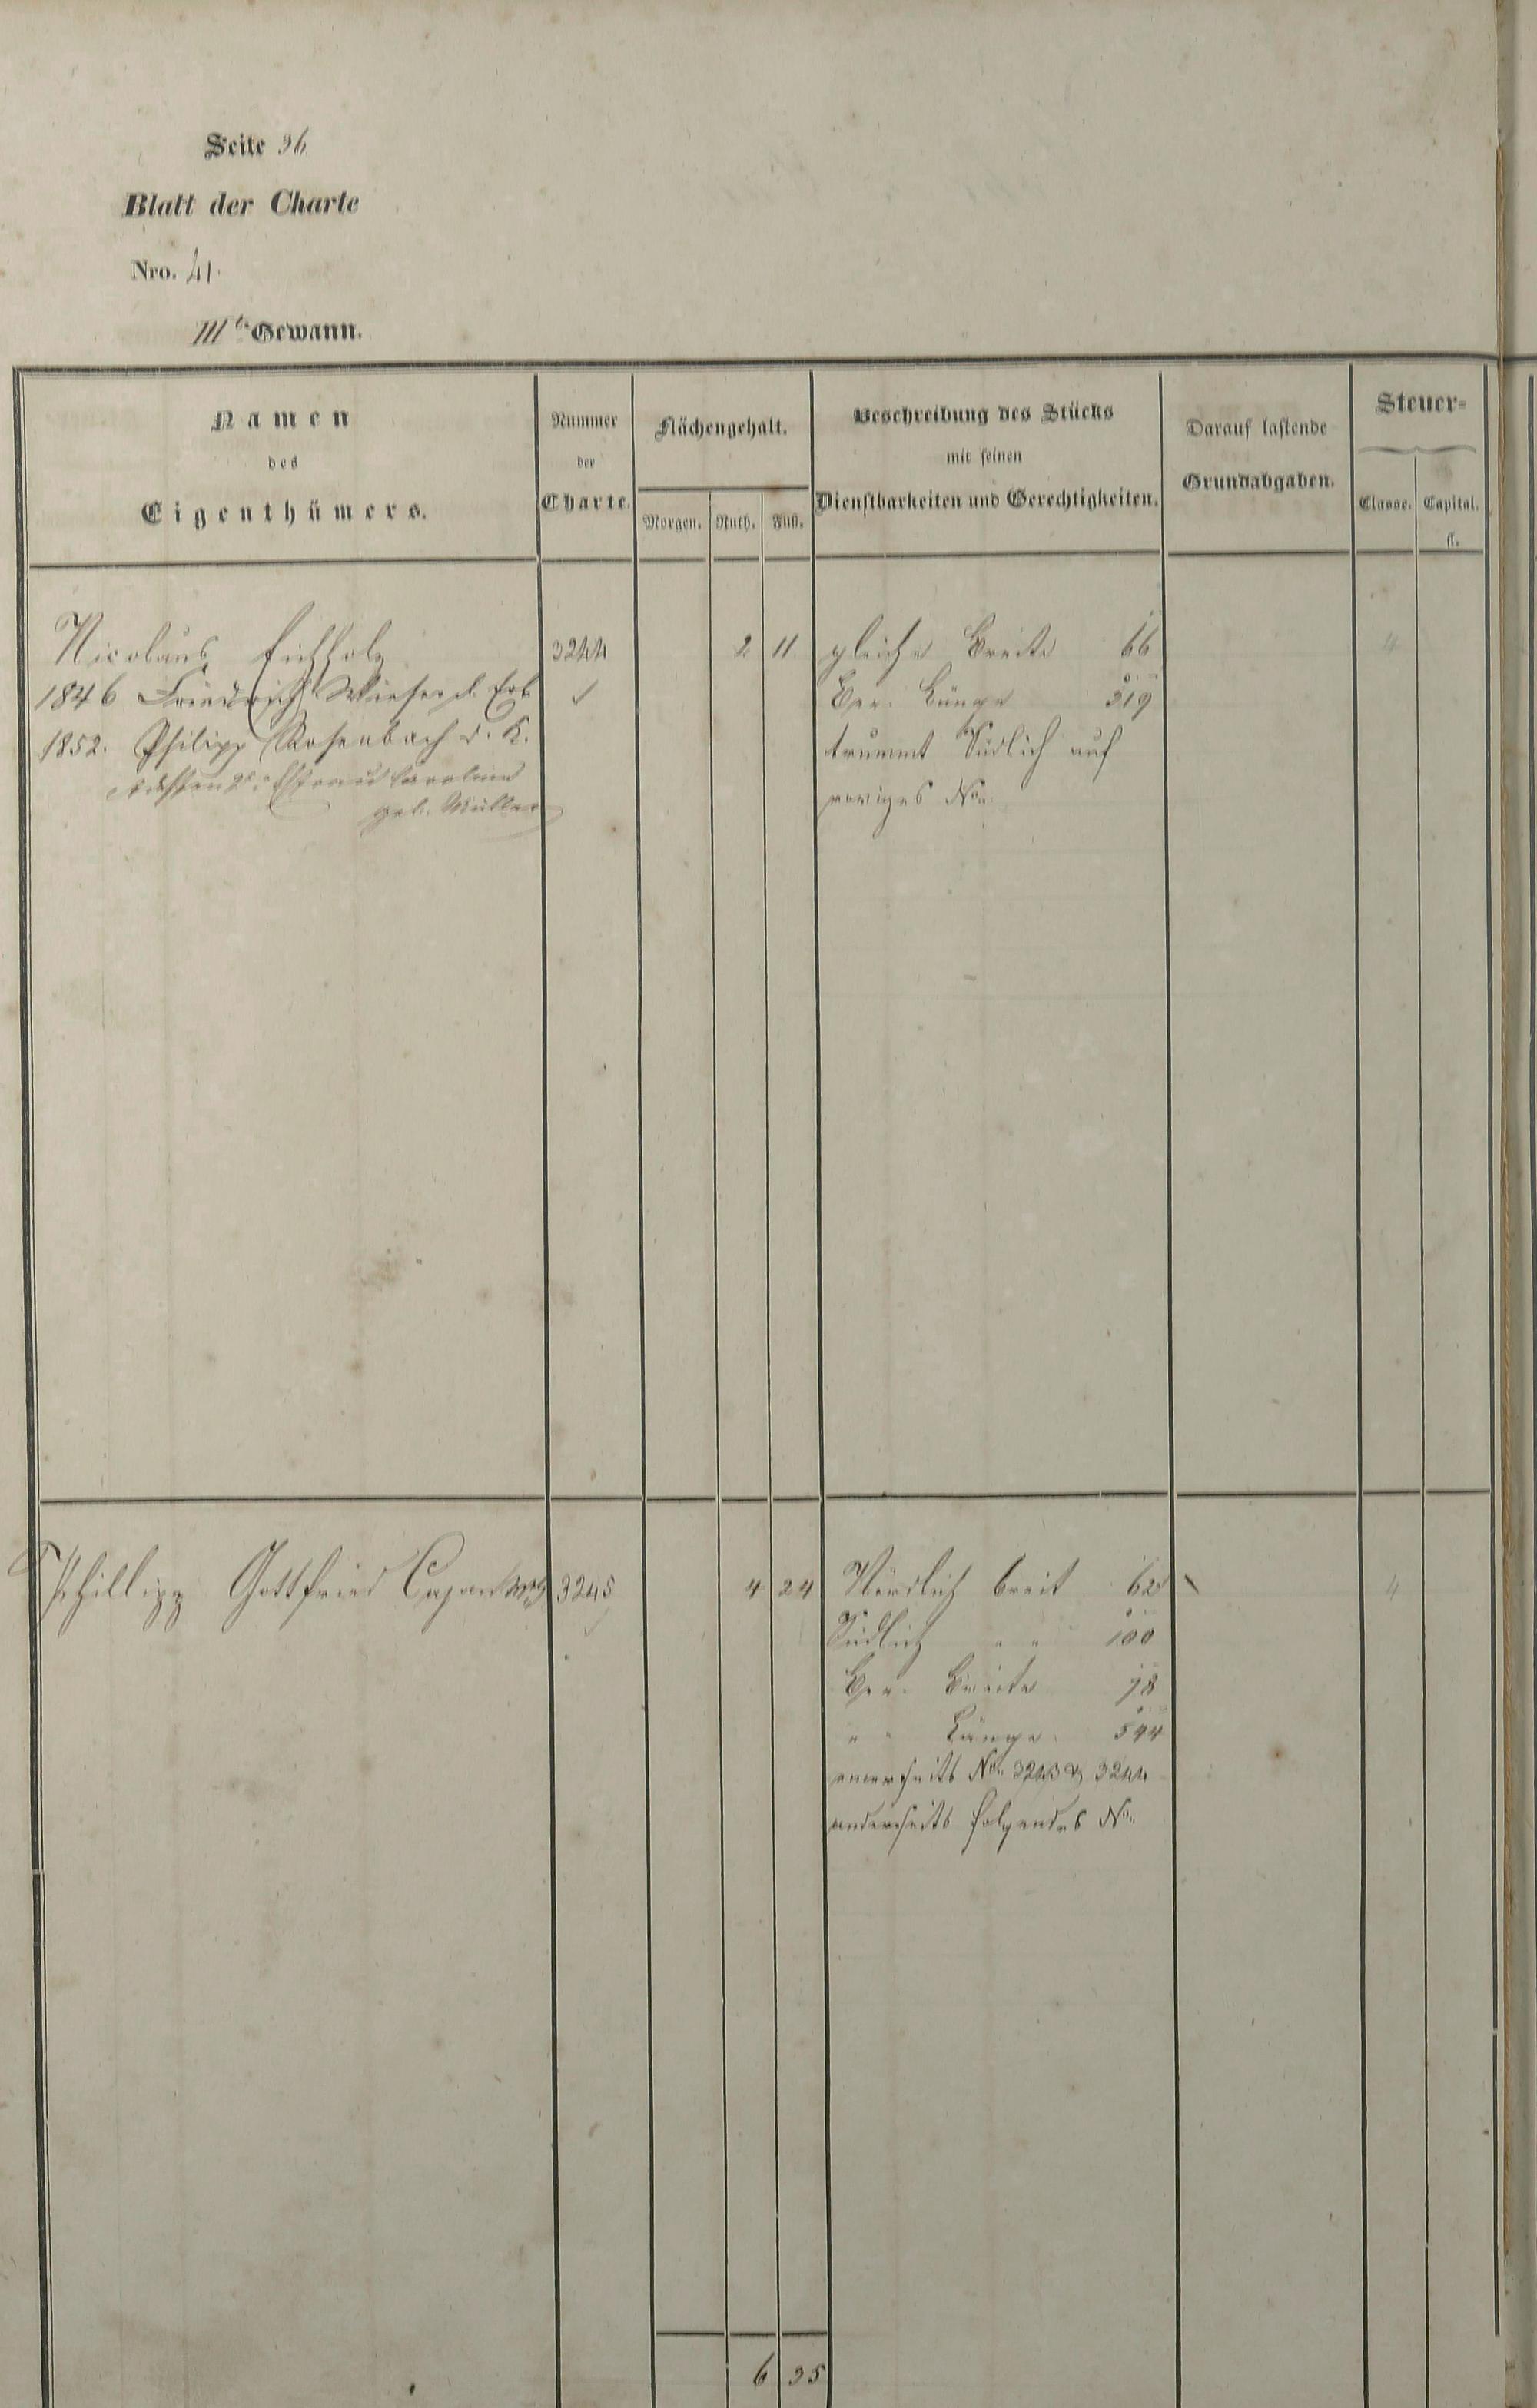 Seite 96
Blatt der Charte
Nro. 41.
IIIte Gewann.
Namen
des
Eigenthümers.
Nummer
der
Charte.
Flächengehalt.
Morgen. Ruth. Fuß.
Beschreibung des Stücks
mit seinen
Dienstbarkeiten und Gerechtigkeiten.
Darauf lastende
Grundabgaben.
Steuer-
Classe. Capital.
fl.
Nicolaus Eichholz 3244 2 11 gleiche Breite 66 4
1846 Friedrich d. Erb. Ber. Länge 319
1852. Philipp Rosenbach d. K. trummt Südlich auf
Ehefrau Caroline voriges No.
geb. Müller
Phillipp Gottfried 3245 4 24 Nördlich breit 62 4
Südlich " " 100
Ber. Breite 78
" " Länge 544
einerseits No. 3243 & 3244
anderseits folgendes No.
6 35